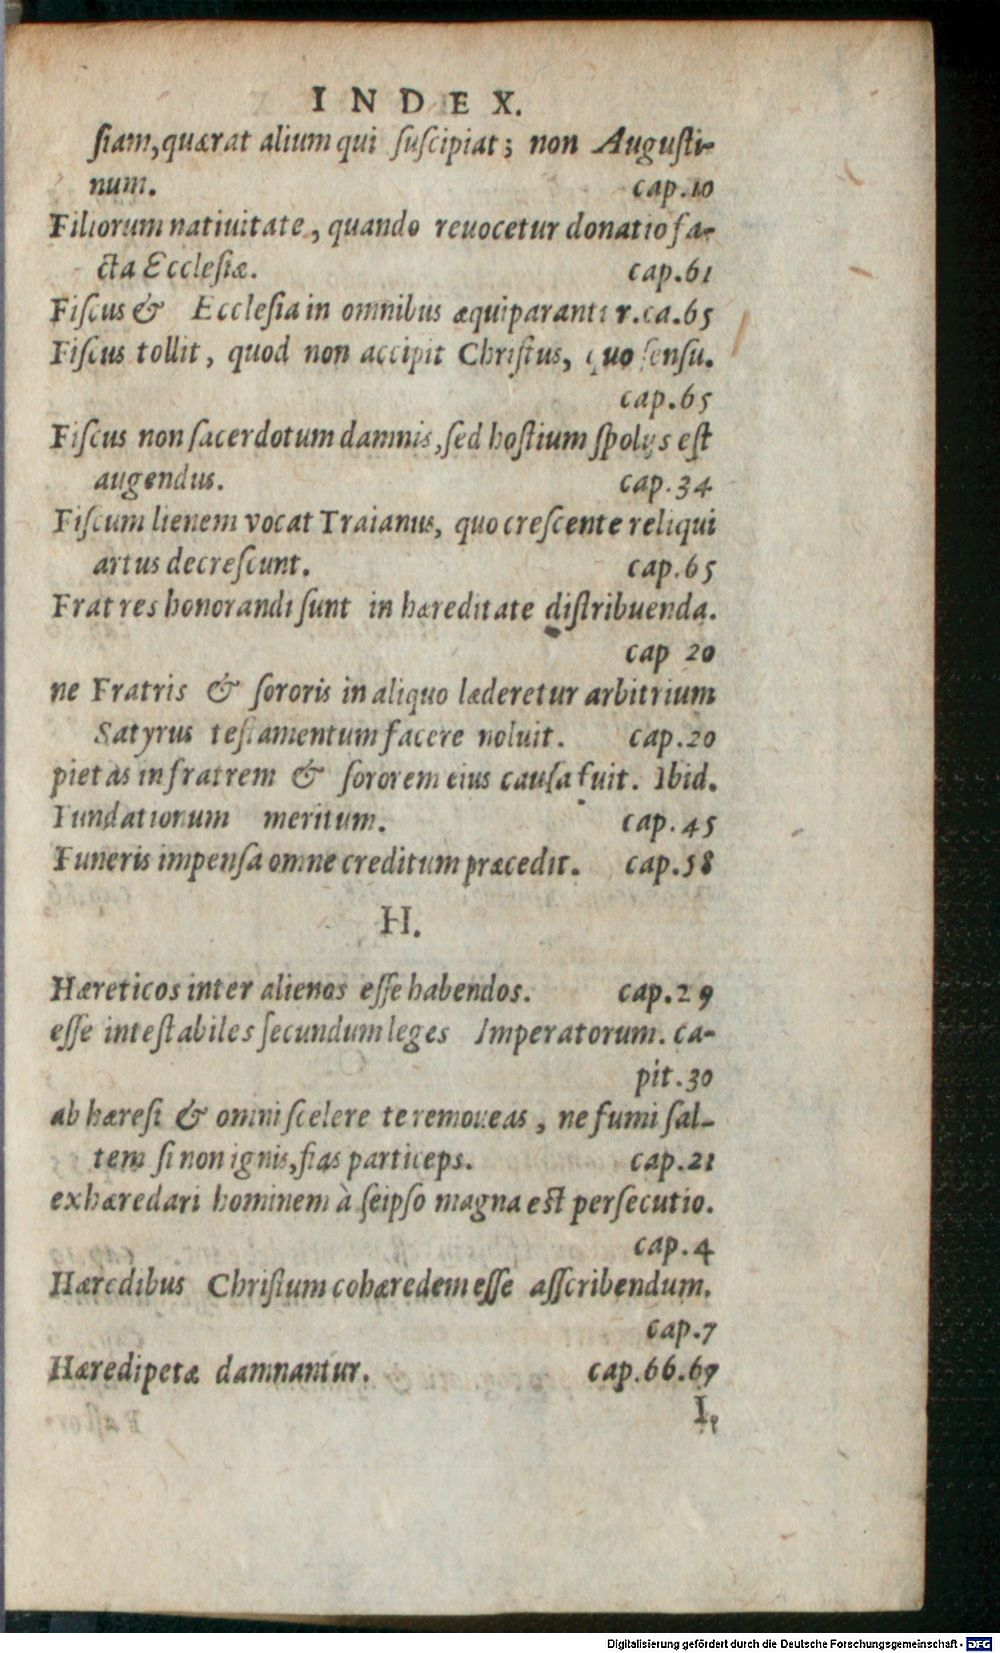 INDEX.
ſiam, quærat alium qui ſuſcipiat; non Auguſti-
num. cap.10
Filiorum nativitate, quando reuocetur donatio fa-
cta Eccleſiæ. cap.61
Fiſcus & Eccleſia in omnibus æquiparantur. ca.65
Fiſcus tollit, quod non accipit Chriſtus, quo ſenſu.
cap.65
Fiſcus non ſacerdotum damnis, ſed hoſtium ſpolijs eſt
augendus. cap.34
Fiſcum lienem vocat Traianus, quo creſcente reliqui
artus decreſcunt. cap.65
Fratres honorandi ſunt in hæreditate diſtribuenda.
cap 20
ne Fratris & ſororis in aliquo læderetur arbitrium
Satyrus teſtamentum facere noluit. cap.20
pietas in fratrem & ſororem eius cauſa fuit. Ibid.
Fundatiorum meritum. cap.45
Funeris impenſa omne creditum præcedit. cap.58
H.
Hæreticos inter alienos eſſe habendos. cap.29
eſſe inteſtabiles ſecundum leges Imperatorum. ca-
pit.30
ab hæreſi & omni ſcelere te remoueas, ne fumi ſal-
tem ſi non ignis, fias particeps. cap.21
exhæredari hominem à ſeipſo magna eſt perſecutio.
cap.4
Hæredibus Chriſtum cohæredem eſſe aſſcribendum.
cap.7
Hæredipetæ damnantur. cap.66.67
I,
Digitalisierung gefördert durch die Deutsche Forschungsgemeinschaft - DFG